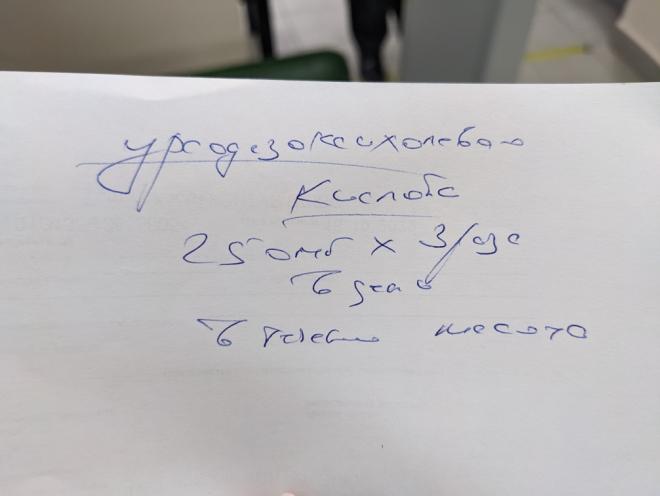 урсодезоксихолевая
кислота
250мг х 3 раза
в день
в течение месяца